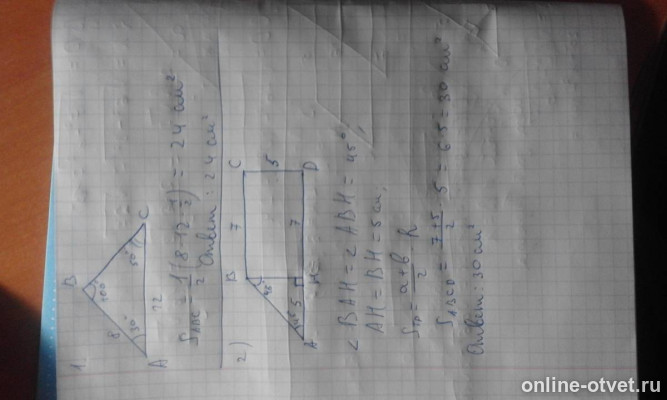 1.
B
100°
8
30°
50°
A
12
C
S ABC = 1/2 (8·12·1/2) = 24 см²
Ответ: 24 см²
2)
B
7
C
45°
5
5
7
A
H
D
∠BAH = ∠ABH = 45°
AH = BH = 5 см,
Sтр = a+b/2 h
S ABCD = 7+5/2 · 5 = 6·5 = 30 см²
Ответ: 30 см²
online-otvet.ru